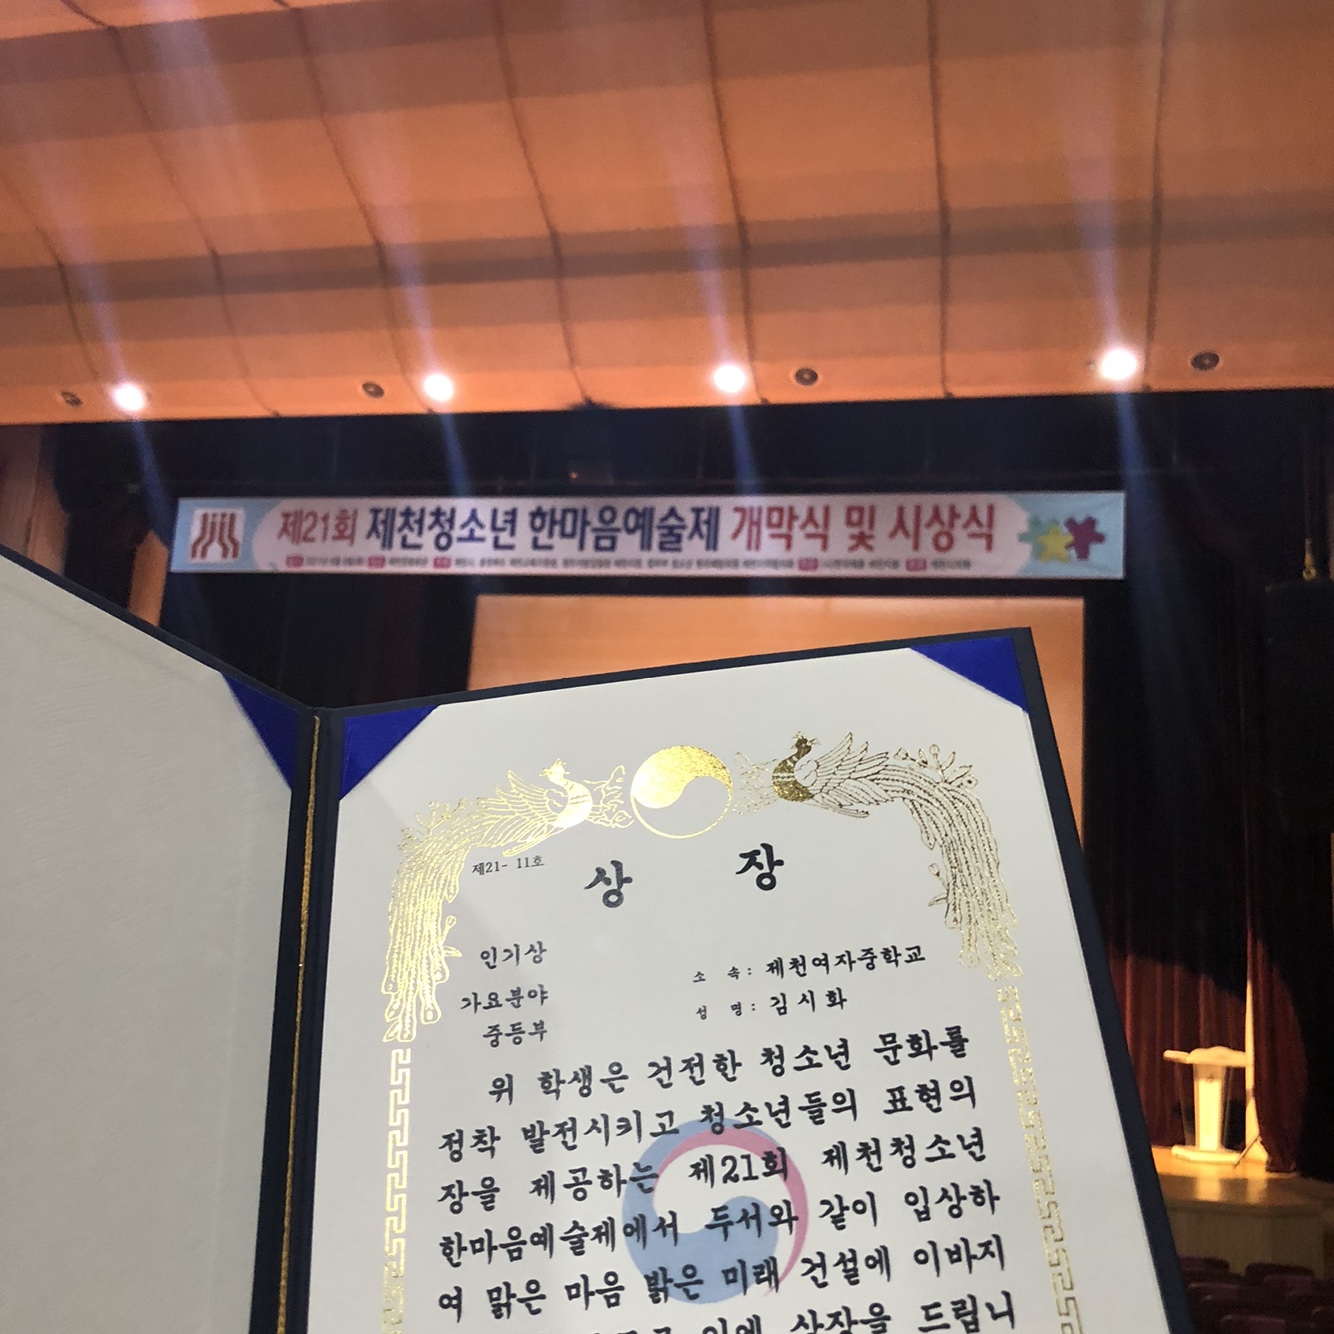 제21회 제천청소년 한마음예술제 개막식 및 시상식
제21- 11호
상 장
인기상
가요분야
중등부
소 속: 제천여자중학교
성 명: 김시화
위 학생은 건전한 청소년 문화를
정착 발전시키고 청소년들의 표현의
장을 제공하는 제21회 제천청소년
한마음예술제에서 두서와 같이 입상하
여 맑은 마음 밝은 미래 건설에 이바지
이에 상장을 드립니